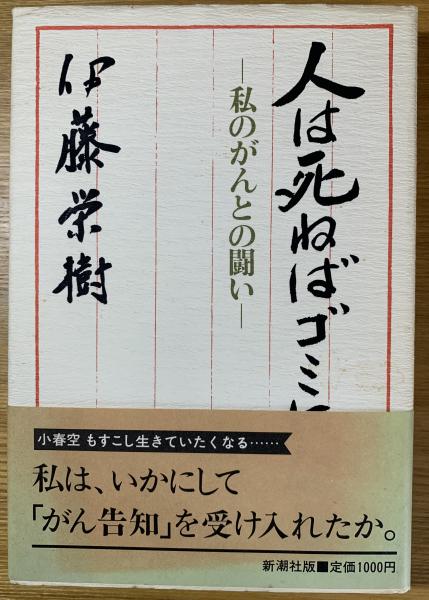 人は死ねばゴミに
―私のがんとの闘い―
伊藤栄樹
小春空 もすこし生きていたくなる……
私は、いかにして
「がん告知」を受け入れたか。
新潮社版■定価1000円